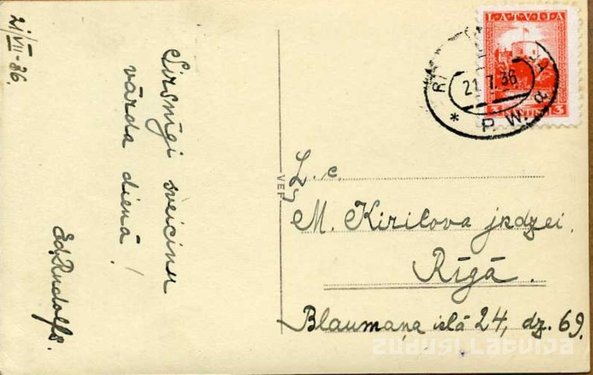 21/VII-36.
Sirsnīgi sveicinu
vārda dienā!
Ed. Rudolfs.
LATVIJA
21.7.36
* P. W. a
3 3
VEF
L. c.
M. Kirilova jkdzei,
Rīgā.
Blaumaņa ielā 24, dz. 69.
zudusi Latvija